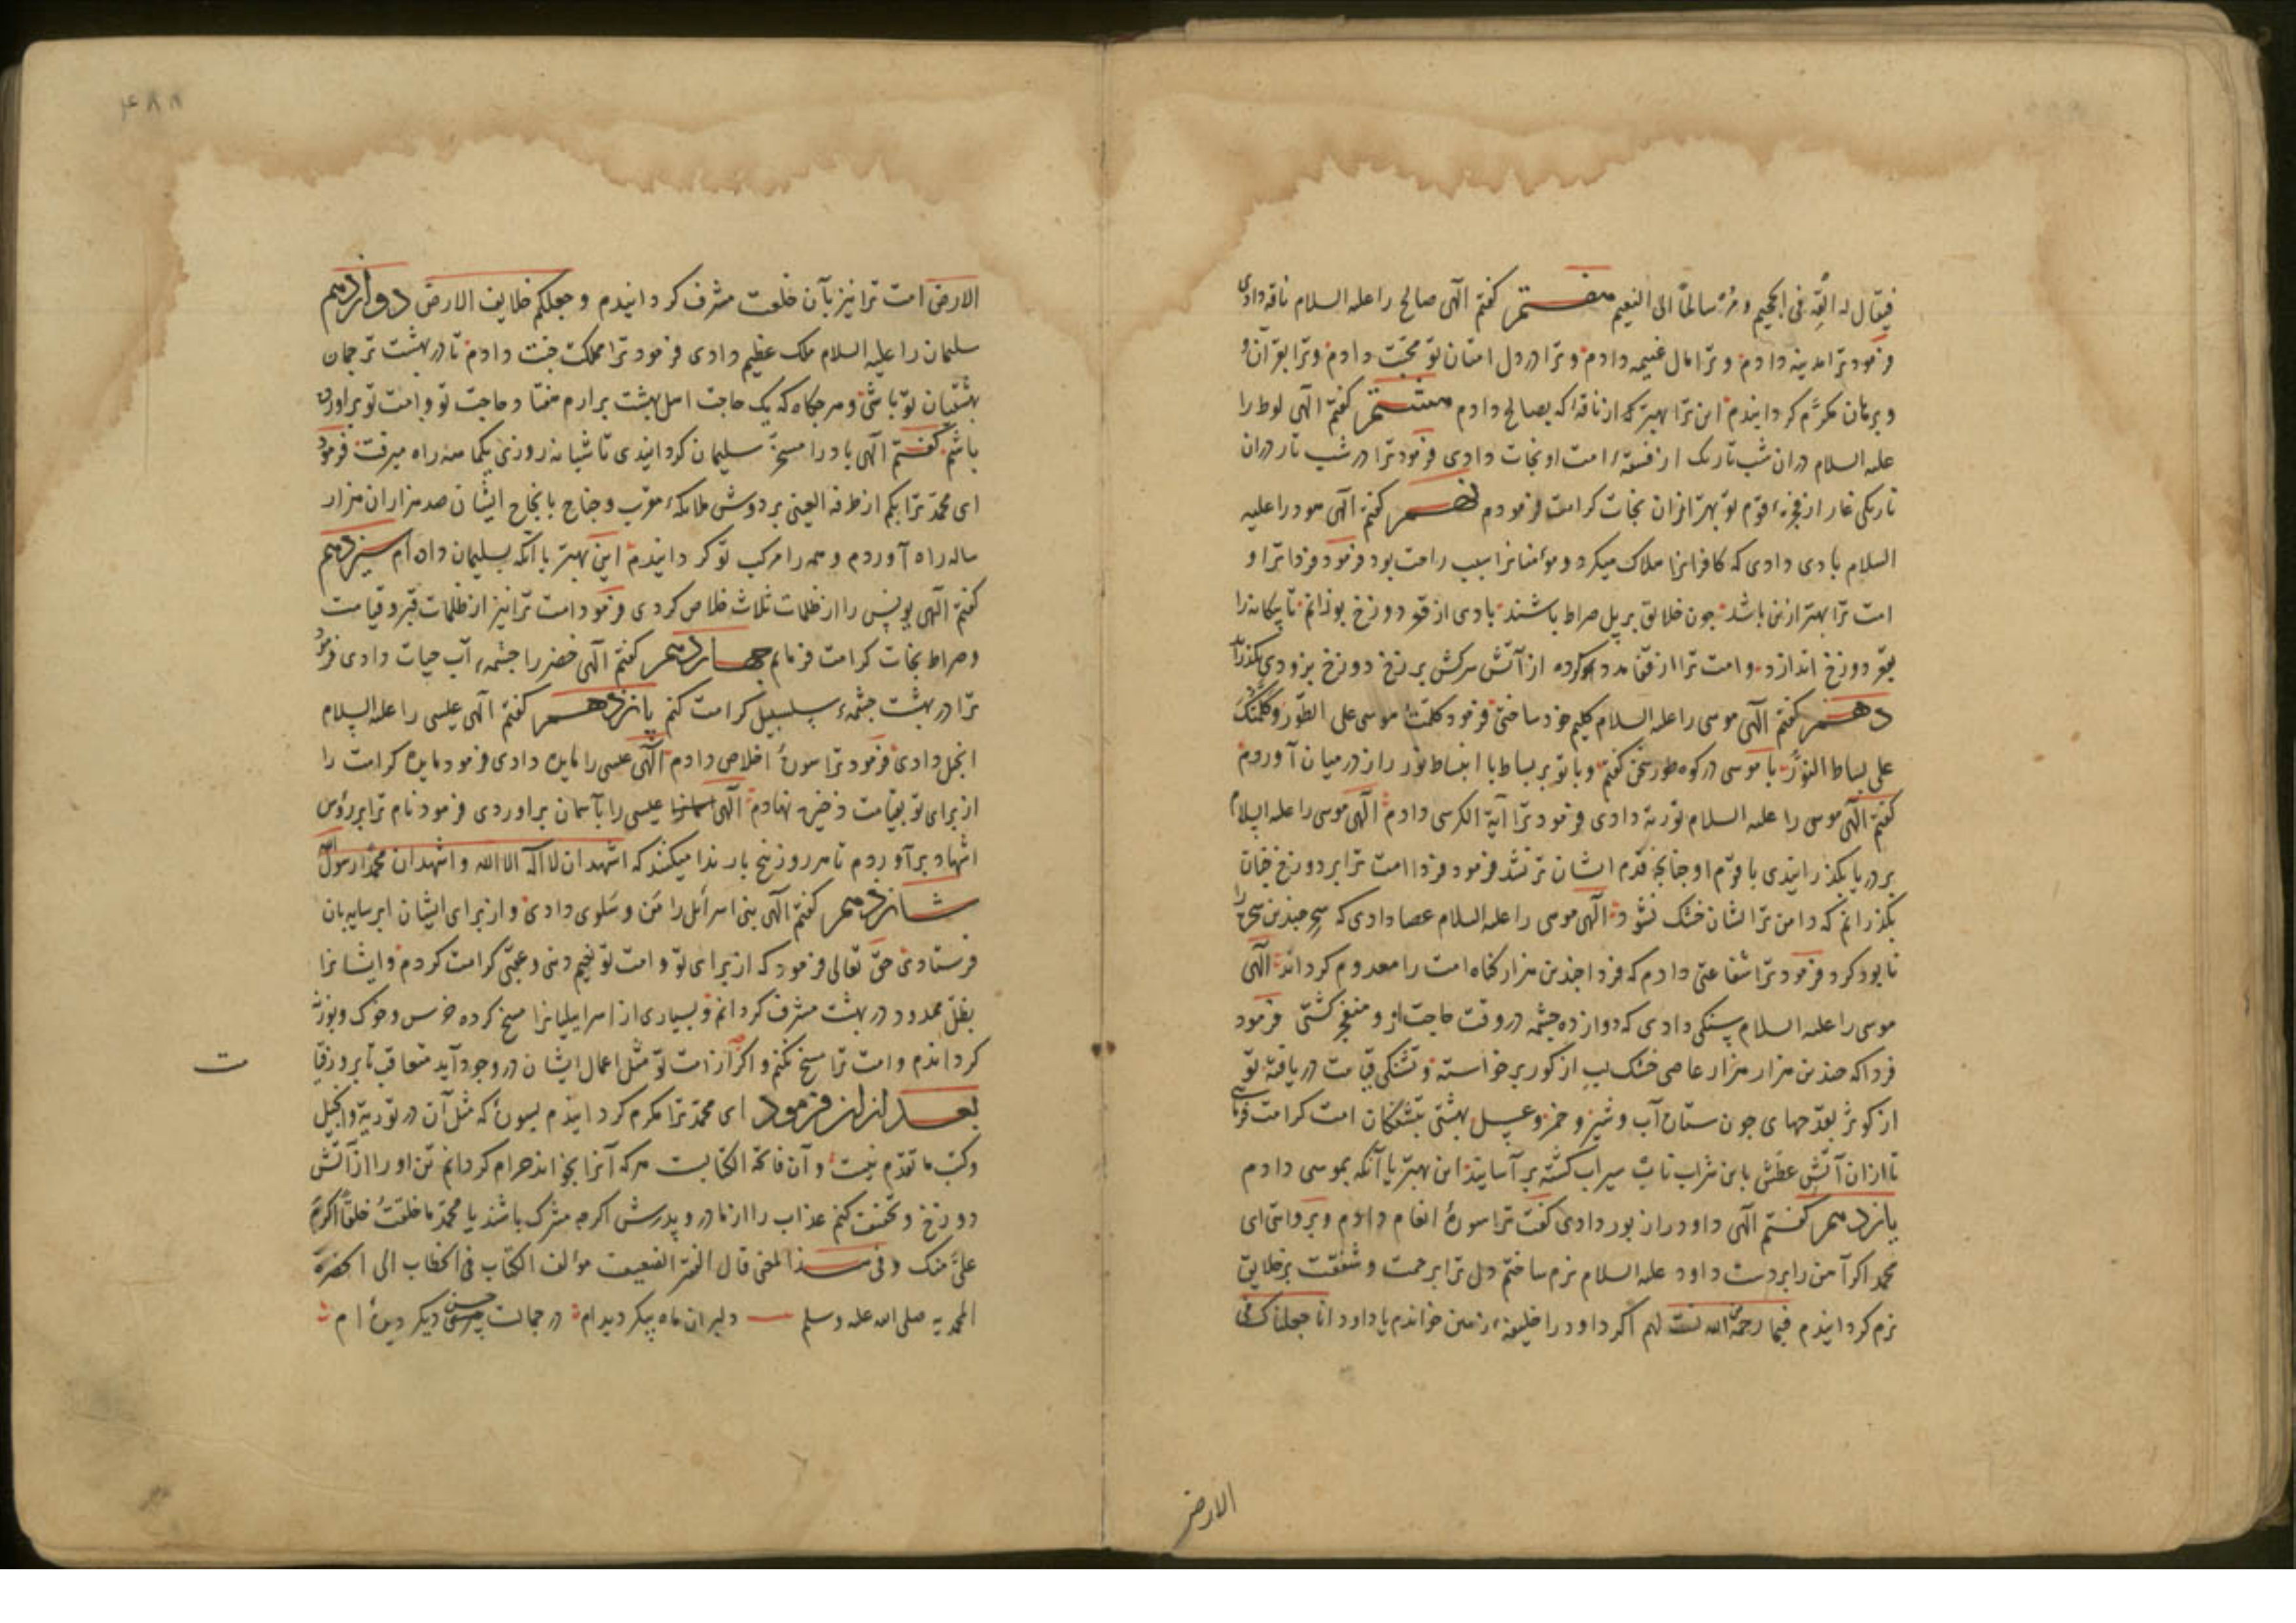 فیقال له القه فی الجحیم و مر سالماً الی النعیم هفتم گفتم الهی صالح را علیه السلام ناقه دادی
فرمود ترا مدینه دادم و ترا مال غنیمه دادم و ترا در دل امتان تو محبت دادم و ترا بقرآن و
و برهان مکرّم کردانیدم این ترا بهتر که از ناقهٔ که بصالح دادم هشتم گفتم الهی لوط را
علیه السلام دران شب تاریک از فسقهٔ امت او نجات دادی فرمود ترا در شب تار دران
تاریکی غار از فجرهٔ قوم تو بهتر ازان نجات کرامت فرمودم نهم گفتم الهی هود را علیه
السلام بادی دادی که کافرانرا هلاک میکرد و مومنانرا سبب راحت بود فرمود فردا ترا و
امت ترا بهتر ازین باشد چون خلایق بر پل صراط باشند بادی از قعر دوزخ بوزانم تا بیکانه را
بقعر دوزخ اندازد و امت ترا از قفا مدد کرده از آتش سرکش برزخ دوزخ بزودی بکذراند
دهم گفتم الهی موسی را علیه السلام کلیم خود ساختی فرمود کلمت موسی علی الطور و کلمتک
علی بساط النور با موسی در کوه طور سخن گفتم و با تو بر بساط با انبساط نور راز در میان آوردم
گفتم الهی موسی را علیه السلام توریة دادی فرمود ترا آیة الکرسی دادم الهی موسی را علیه السلام
بر دریا بکذرانیدی با قوم او چنانچه قدم ایشان تر نشد فرمود فردا امت ترا بر دوزخ چنان
بکذرانم که دامن تر ایشان خشک نشود الهی موسی را علیه السلام عصا دادی که سحر چندین سحره را
نابود کرد فرمود ترا شفاعتی دادم که فردا چندین هزار کناه امت را معدوم کرداند الهی
موسی را علیه السلام سنکی دادی که دوازده چشمه در وقت حاجت ازو منفجر کشتی فرمود
فردا که چندین هزار هزار عاصی خشک لب از کور برخواسته و تشنکی قیامت دریافته تو
از کوثر بقدحهای چون ستاره آب و شیر و خمر و عسل بهشتی بتشنکان امت کرامت فرمای
تا ازان آتش عطش باین شراب ناب سیراب کشته بر آسایند این بهتر یا آنکه بموسی دادم
یازدهم گفتم الهی داود را زبور دادی گفت ترا سورهٔ انعام دادم و بروایتی ای
محمد اکر آهن را بر دست داود علیه السلام نرم ساختم دل ترا برحمت و شفقت بر خلایق
نرم کردانیدم فبما رحمة من الله لنت لهم اکر داود را خلیفهٔ زمین خواندم یا داود انا جعلناک فی
الارض
۴۸۸
الارض امت ترا نیز بآن خلعت مشرف کردانیدم و جعلکم خلایف الارض دوازدهم
سلیمان را علیه السلام ملک عظیم دادی فرمود ترا مملکت جنت دادم تا در بهشت ترجمان
بهشتیان تو باشی و هر جکاه که یک حاجت اهل بهشت برارم هفتاد حاجت تو و امت تو براورده
باشم گفتم الهی باد را مسخر سلیمان کردانیدی تا شبانه روزی یکماهه راه میرفت فرمود
ای محمد ترا بکم از طرفة العینی بر دوش ملائکهٔ مقرب و جناح با نجاح ایشان صد هزاران هزار
ساله راه آوردم و همه را مرکب تو کردانیدم این بهتر یا آنکه بسلیمان داده ام سیزدهم
گفتم الهی یونس را از ظلمات ثلاث خلاص کردی فرمود امت ترا نیز از ظلمات قبر و قیامت
و صراط نجات کرامت فرمایم چهاردهم گفتم الهی خضر را چشمهٔ آب حیات دادی فرمود
ترا در بهشت چشمهٔ سلسبیل کرامت کنم پانزدهم گفتم الهی عیسی را علیه السلام
انجیل دادی فرمود ترا سورهٔ اخلاص دادم الهی عیسی را مایده دادی فرمود مایده کرامت را
از برای تو بقیامت ذخیره نهادم الهی عیسی را بآسمان براوردی فرمود نام ترا بر رؤس
اشهاد برآوردم تا هر روز پنج بار ندا میکنند که اشهد ان لا اله الا الله و اشهد ان محمدا رسول الله
شانزدهم گفتم الهی بنی اسرائل را من و سلوی دادی و از برای ایشان ابر سایه بان
فرستادی حق تعالی فرمود که از برای تو و امت تو نعیم دنیی و عقبی کرامت کردم و ایشانرا
بظل ممدود در بهشت مشرف کردانم و بسیاری از اسراییلیانرا مسخ کرده خرس و خوک و بوزنه
کردانیدم و امت ترا مسخ نکنم و اکر از امت تو مثل اعمال ایشان در وجود آید متعاقب تا بروز قیا
ت
بعد ازان فرمود ای محمد ترا مکرم کردانیدم بسورهٔ که مثل آن در توریة و انجیل
و کتب ما تقدم نیست و آن فاتحة الکتابست هر که آنرا بخواند حرام کردانم تن او را از آتش
دوزخ و تخفیف کنم عذاب را از مادر و پدرش اکرچه مشرک باشند یا محمد ما خلقت خلقاً اکرم
علیّ منک و فی هذا المعنی قال الفقیر الضعیف مؤلف الکتاب فی الخطاب الی الحضرة
المحمدیه صلی الله علیه وسلم دلبران ماه پیکر دیده ام در جمالت حسن دیکر دیده ام